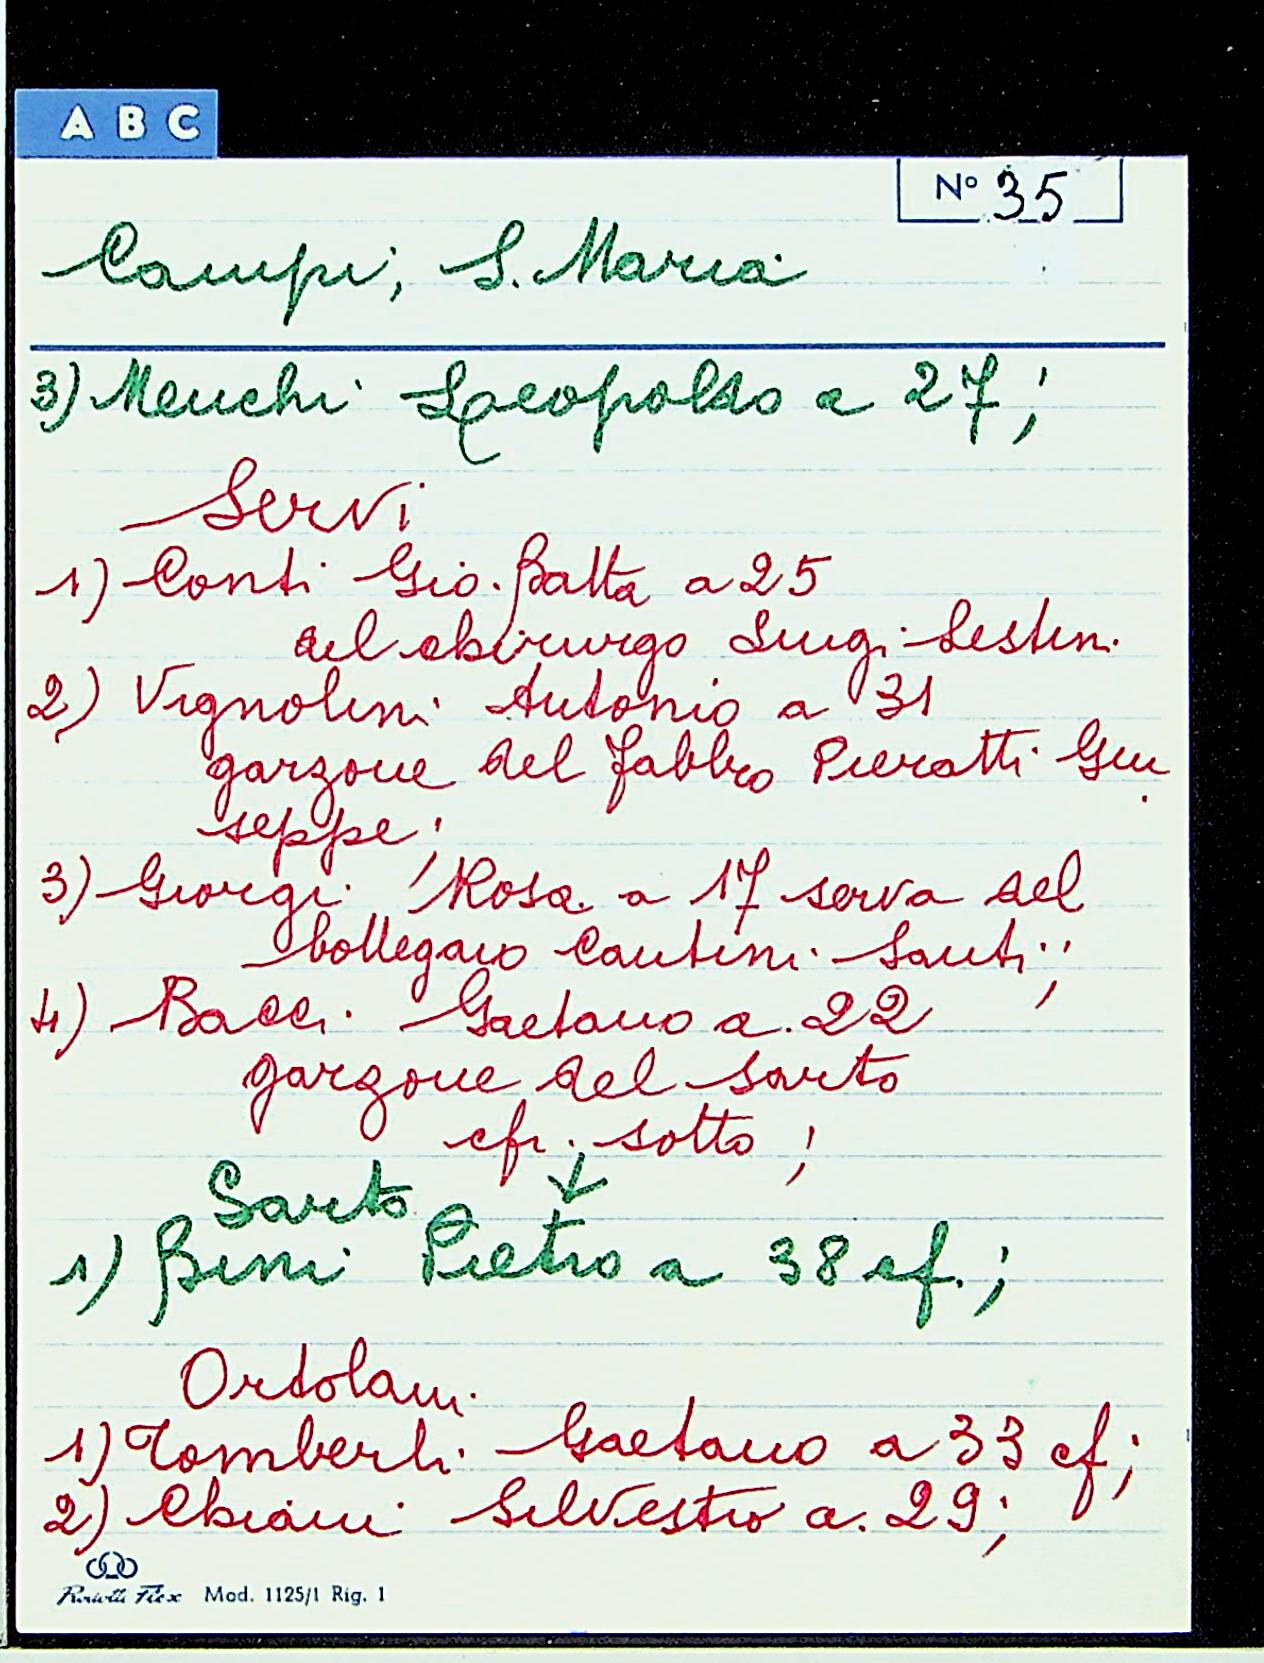 A B C
Nº 35
Campi, S. Maria
3) Menchi Leopoldo a 27;
Servi
1) Conti Gio. Batta a 25
del chirurgo Luigi Sestini
2) Vignolini Antonio a 31
garzone del fabbro Pieratti Giu
seppe;
3) Giorgi Rosa a 17 serva del
bottegaio Cantini Santi;
4) Bacci Gaetano a. 22
garzone del sarto
cfr. sotto;
Sarto
1) Bini Pietro a 38 cf.;
Ortolani
1) Tomberli Gaetano a 33 cf;
2) Chiani Silvestro a. 29;
Flex Mod. 1125/1 Rig. 1